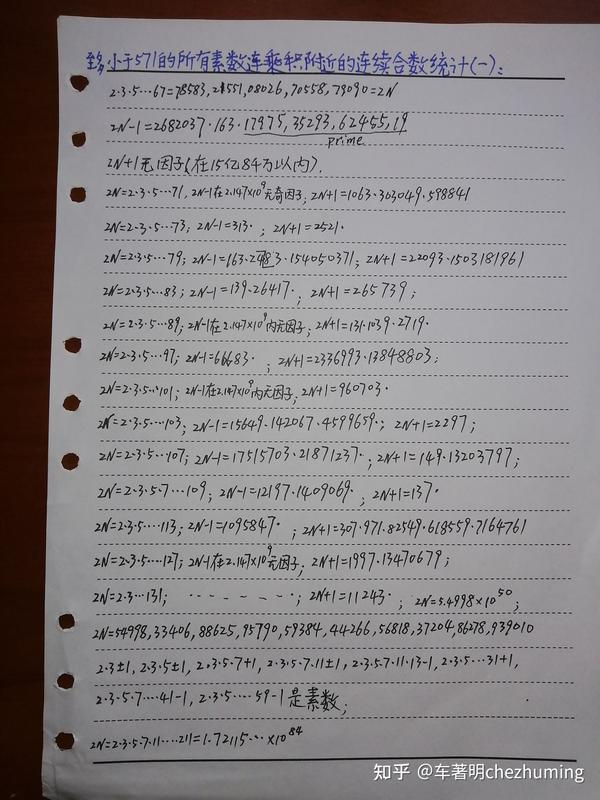 至多小于571的所有素数连乘积附近的连续合数统计(一):
2·3·5…67=78583,21551,08026,70558,79090=2N
2N-1=2682037·163·17975,35293,62455,19
prime
2N+1无因子(在15亿84万以内).
2N=2·3·5…71, 2N-1在2.147×10⁹无奇因子; 2N+1=1063·303049·598841
2N=2·3·5…73; 2N-1=313· ; 2N+1=2521·
2N=2·3·5…79; 2N-1=163·2683·154050371; 2N+1=22093·1503181961
2N=2·3·5…83; 2N-1=139·26417· ; 2N+1=265739;
2N=2·3·5…89; 2N-1在2.147×10⁹内无因子; 2N+1=131·1039·2719·
2N=2·3·5…97; 2N-1=66683· ; 2N+1=2336993·13848803;
2N=2·3·5…101; 2N-1在2.147×10⁹内无因子; 2N+1=960703·
2N=2·3·5…103; 2N-1=15649·142067·4599659·; 2N+1=2297;
2N=2·3·5…107; 2N-1=17515703·21871237·; 2N+1=149·13203797;
2N=2·3·5·7…109; 2N-1=12197·1409069· ; 2N+1=137·
2N=2·3·5…113; 2N-1=1095847· ; 2N+1=307·971·82549·618559·7164761
2N=2·3·5…127; 2N-1在2.147×10⁹无因子; 2N+1=1997·13470679;
2N=2·3…131; ········; 2N+1=11243· ; 2N=5.4998×10⁵⁰;
2N=54998,33406,88625,95790,59384,44266,56818,37204,86278,939010
2·3±1, 2·3·5±1, 2·3·5·7+1, 2·3·5·7·11±1, 2·3·5·7·11·13-1, 2·3·5…31+1,
2·3·5·7…41-1, 2·3·5…59-1是素数;
2N=2·3·5·7·11…211=1.72115…×10⁸⁴
知乎 @车著明chezhuming